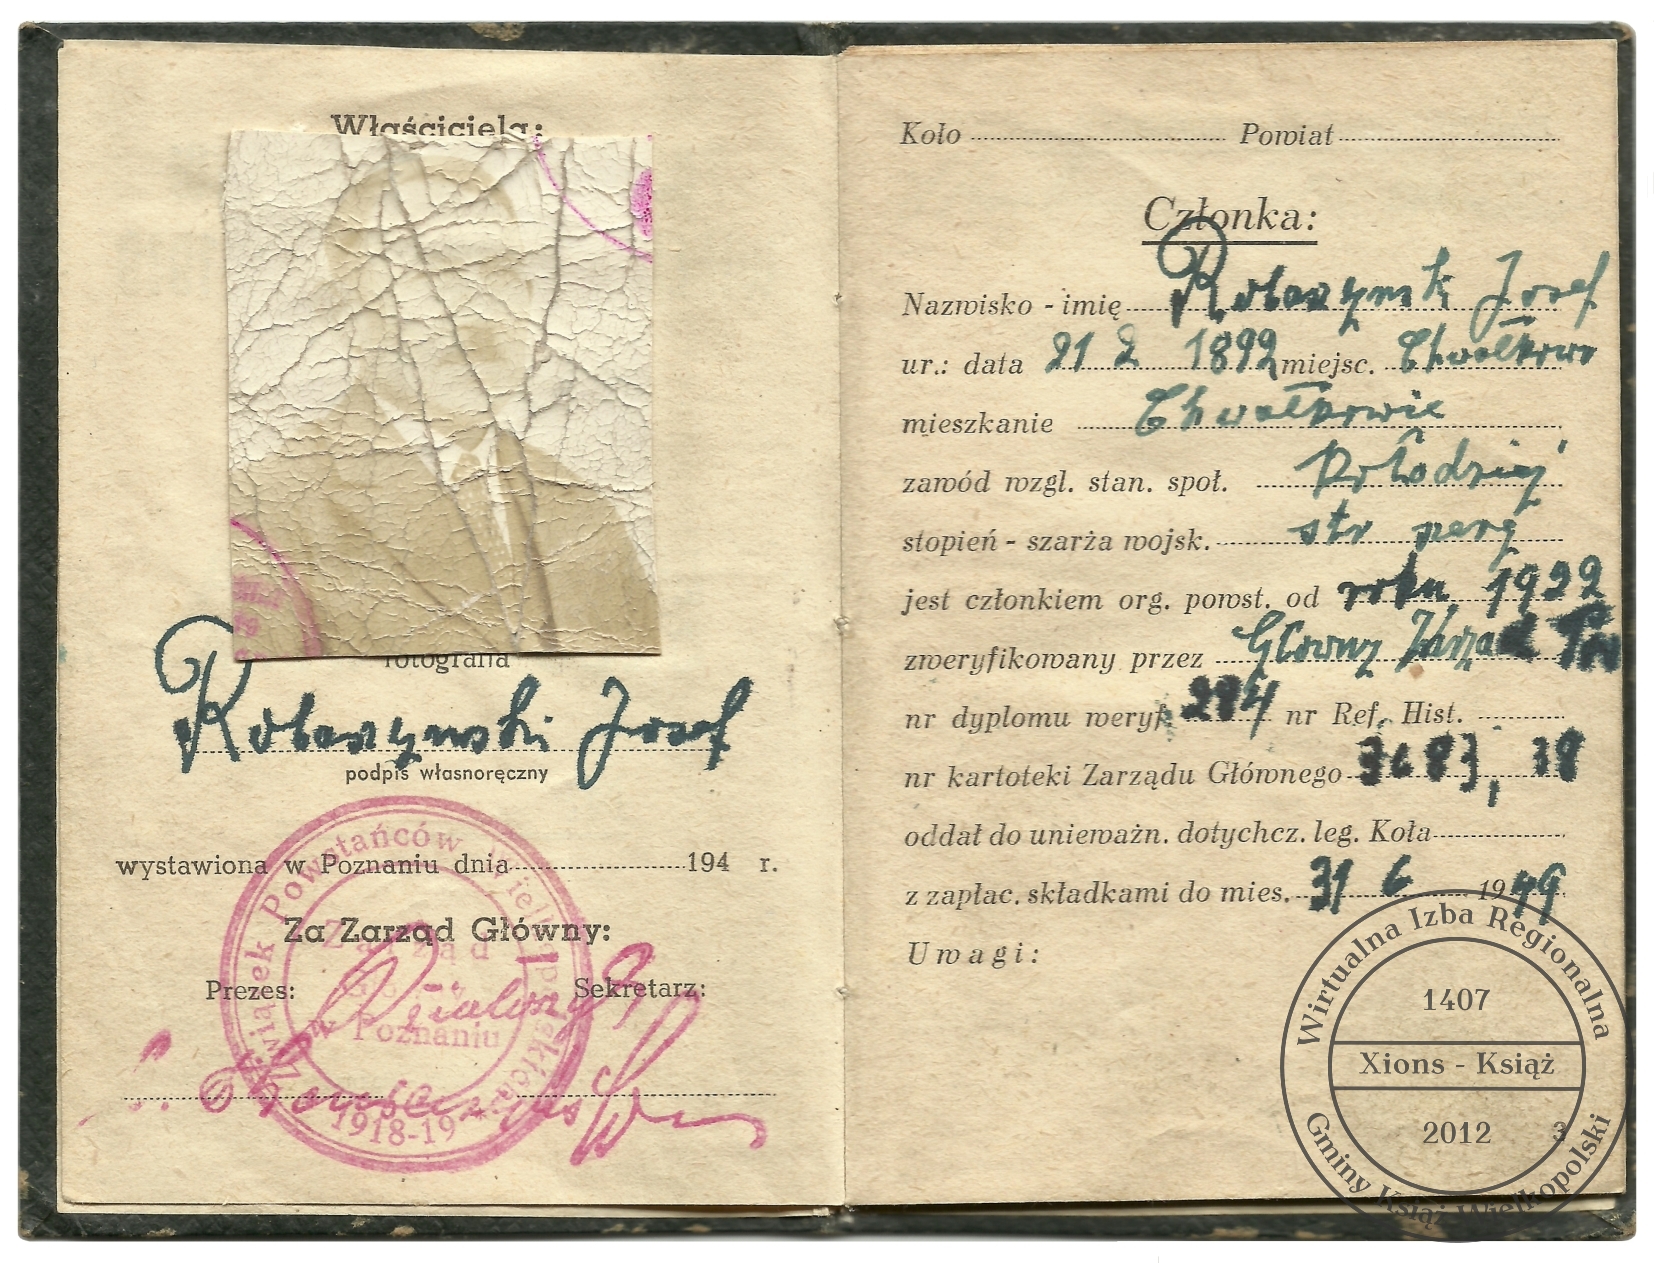 Właściciela:
fotografia
Robaszynski Josef
podpis własnoręczny
wystawiona w Poznaniu dnia 194 r.
Za Zarząd Główny:
Prezes: Sekretarz:
Związek Powstańców Wielkopolskich
Zarząd
Poznaniu
1918-19
Koło Powiat
Członka:
Nazwisko - imię Robaszynsk Josef
ur.: data 21 2 1892 miejsc. Chwałkowo
mieszkanie Chwałkowie
zawód wzgl. stan. społ. Kołodziej
stopień - szarża wojsk. str szerg
jest członkiem org. powst. od roku 1922
zweryfikowany przez Glowny Zarzad
nr dyplomu weryf. 284 nr Ref. Hist.
nr kartoteki Zarządu Głównego 3683, 38
oddał do unieważn. dotychcz. leg. Koła
z zapłac. składkami do mies. 31 6 1949
Uwagi:
3
Wirtualna Izba Regionalna
1407
Xions - Książ
2012
Gminy Książ Wielkopolski